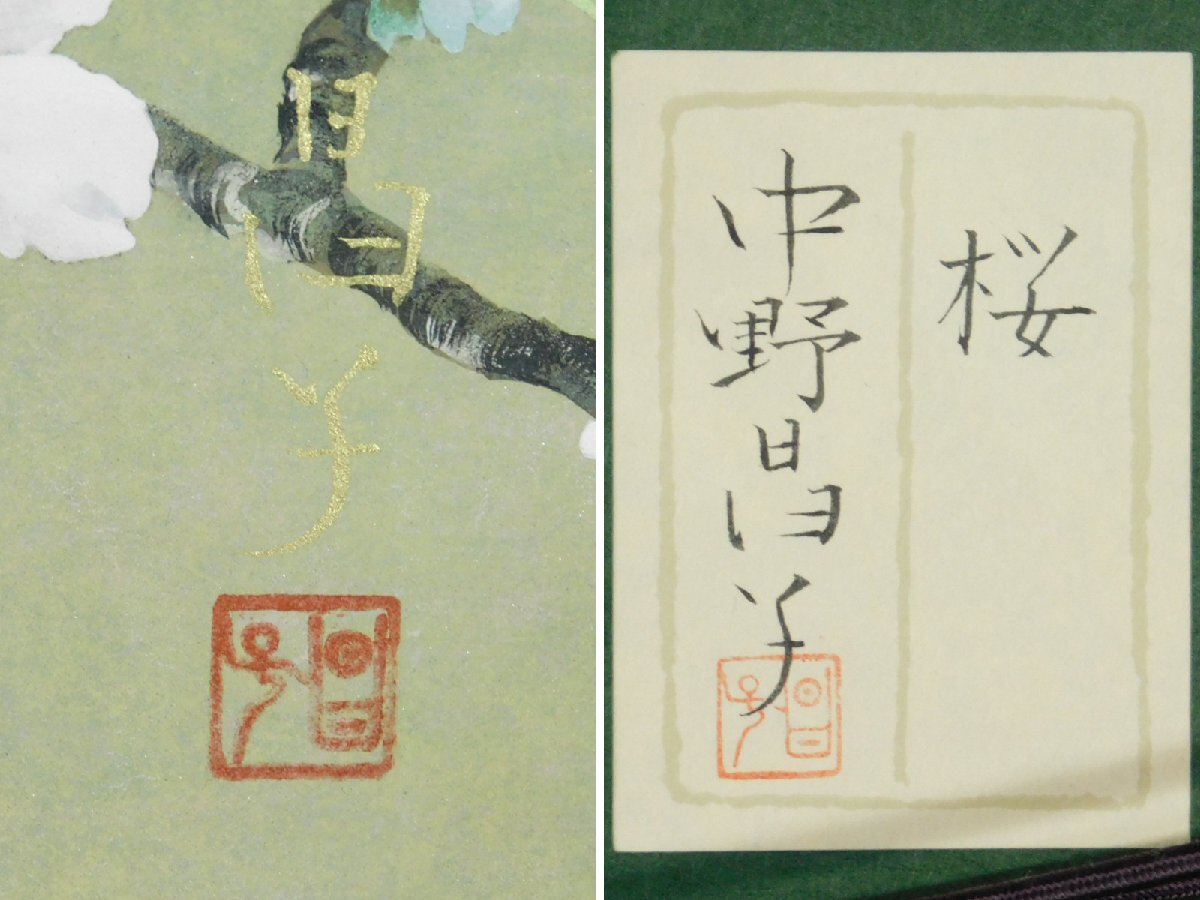 昌子
昌子
桜
中野昌子
昌子